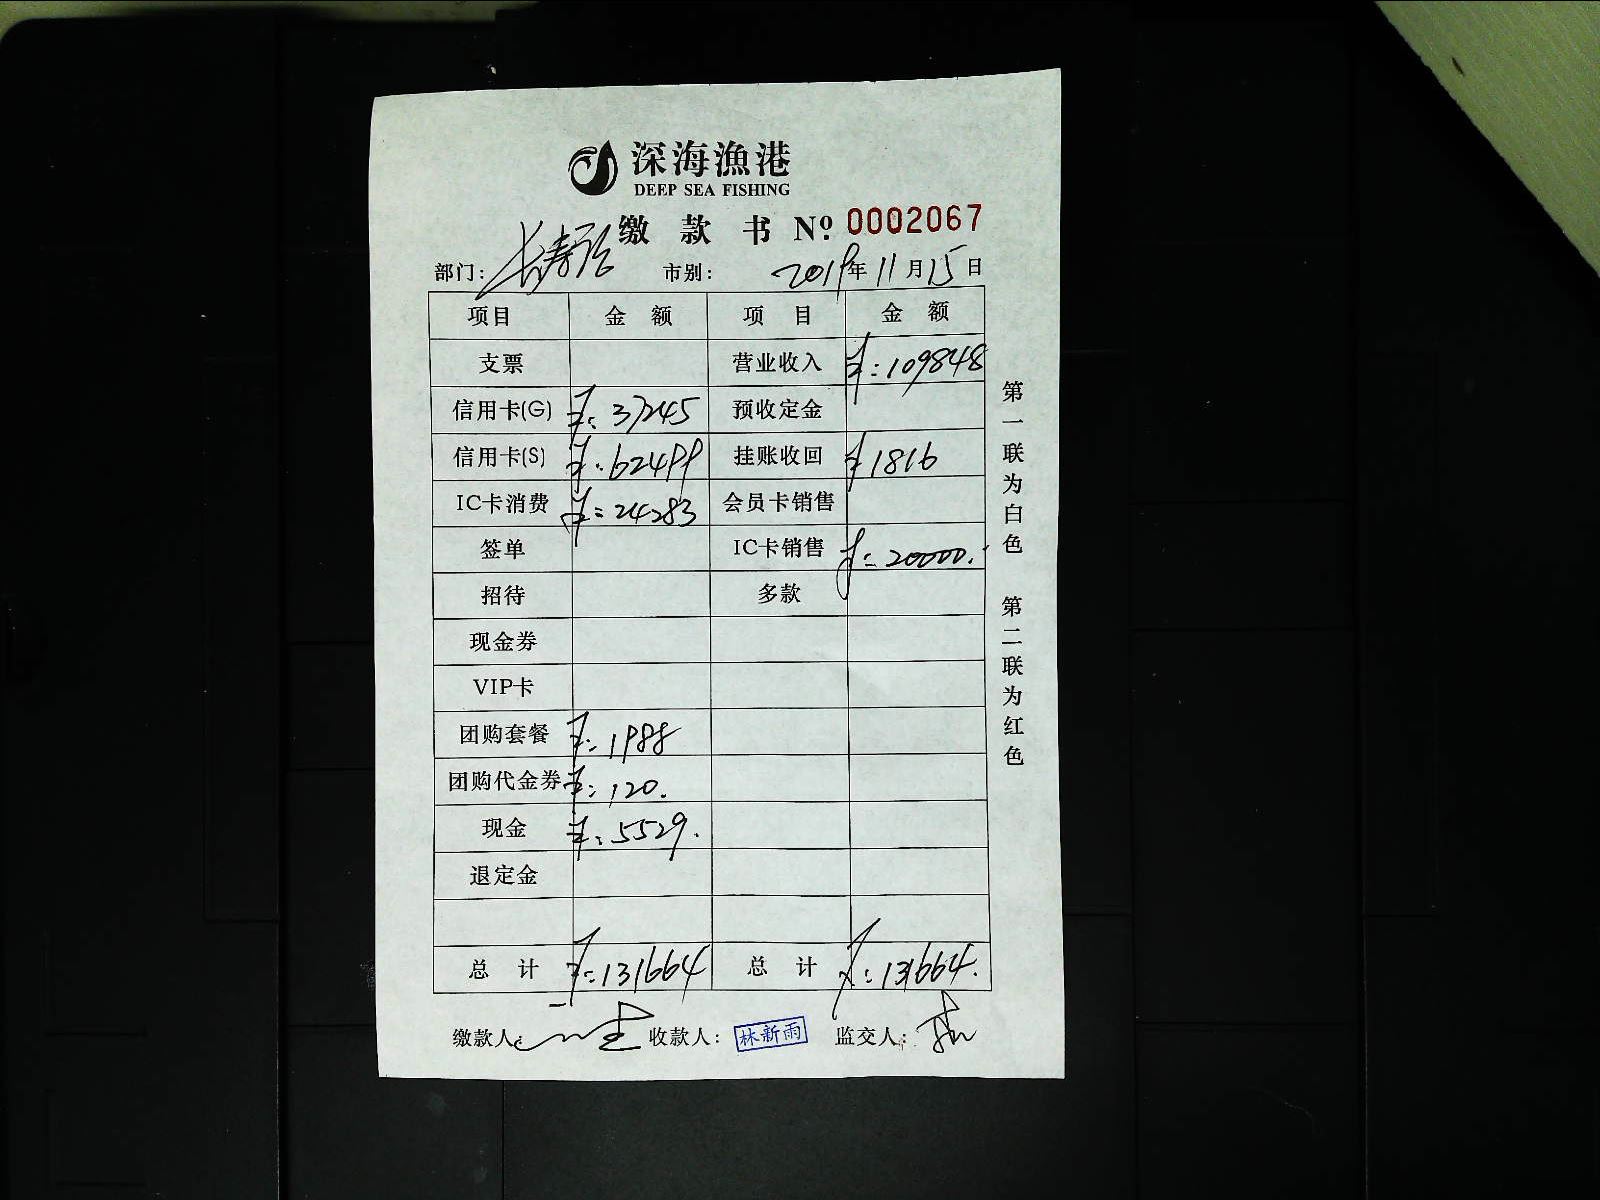 深海漁港
DEEP SEA FISHING
缴款书 Nº 0002067
部门: 长寿路 市别: 2019年11月15日
项目 金额 项目 金额
支票 营业收入 ¥:109848
信用卡(G) ¥:37245 预收定金
信用卡(S) ¥:62499 挂账收回 ¥1816
IC卡消费 ¥:24283 会员卡销售
签单 IC卡销售 ¥:20000.
招待 多款
现金券
VIP卡
团购套餐 ¥:1988
团购代金券 ¥:120.
现金 ¥:5529.
退定金
总计 ¥:131664 总计 ¥:131664.
缴款人: 收款人: 林新雨 监交人:
第一联为白色 第二联为红色